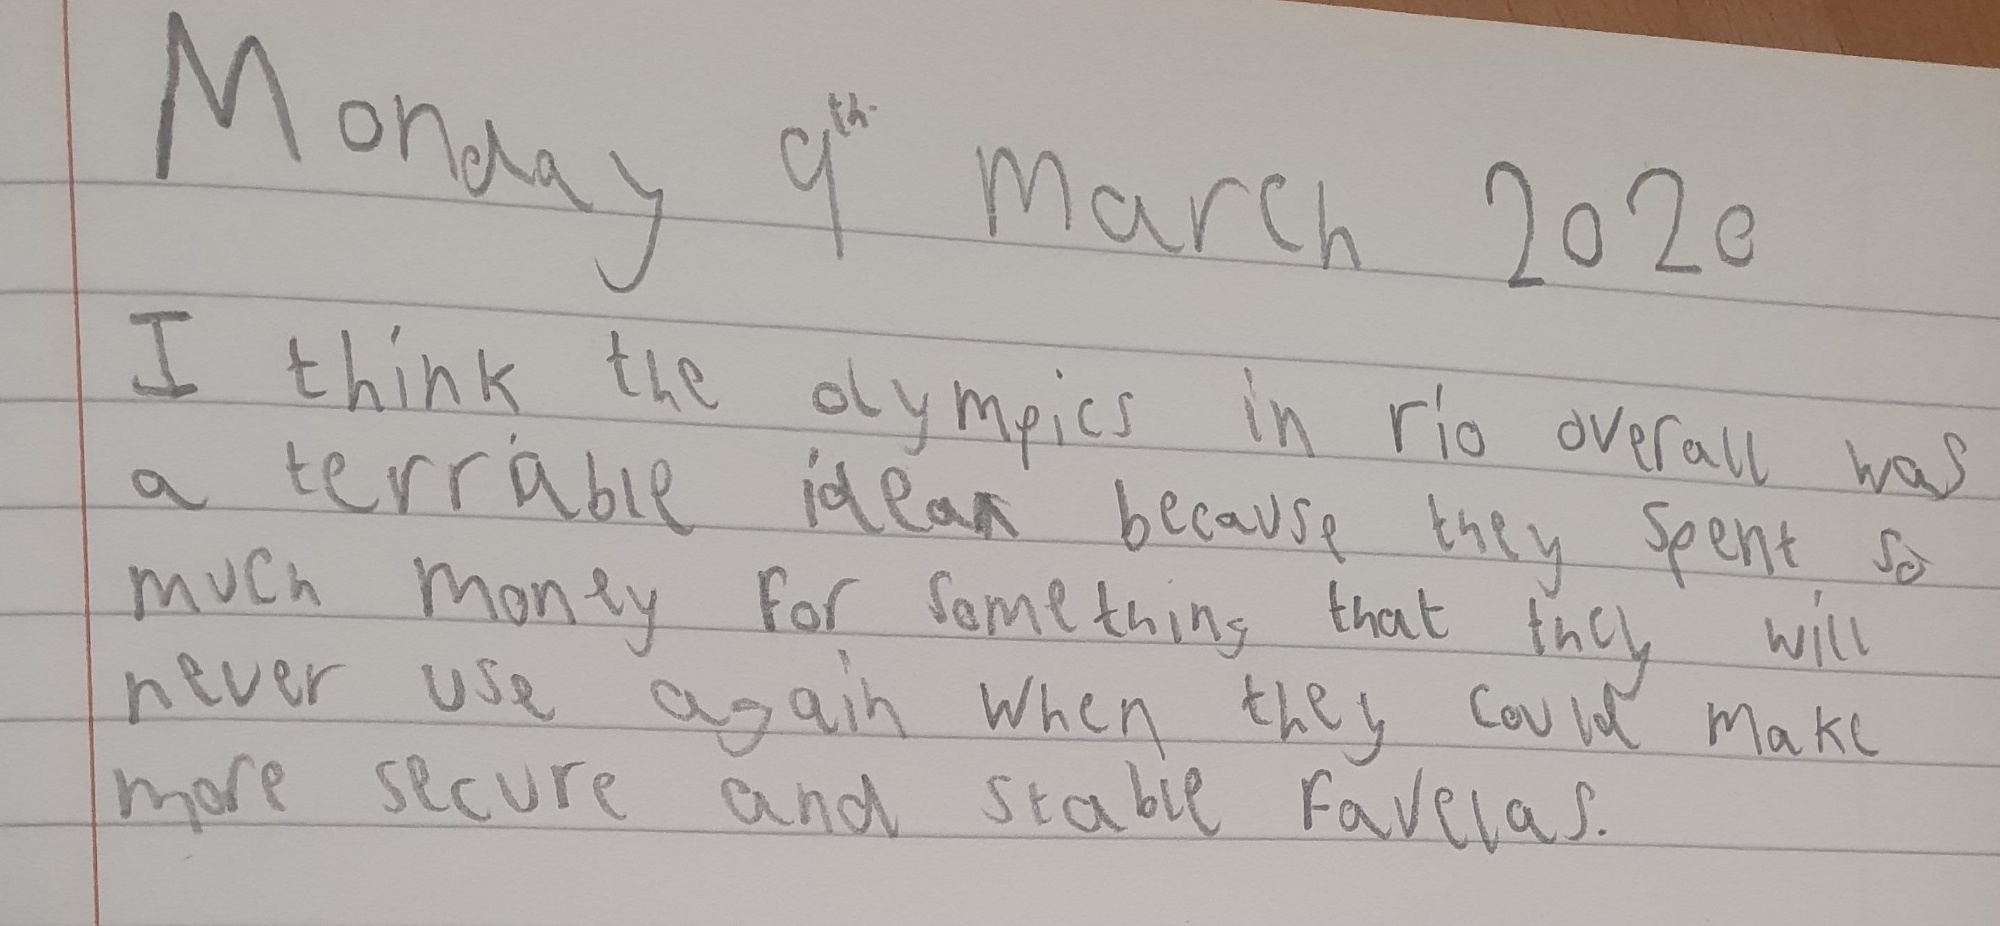 Monday 9th. March 2020
I think the olympics in rio overall was
a terrable idea because they spent so
much money for something that they will
never use again when they could make
more secure and stable Favelas.